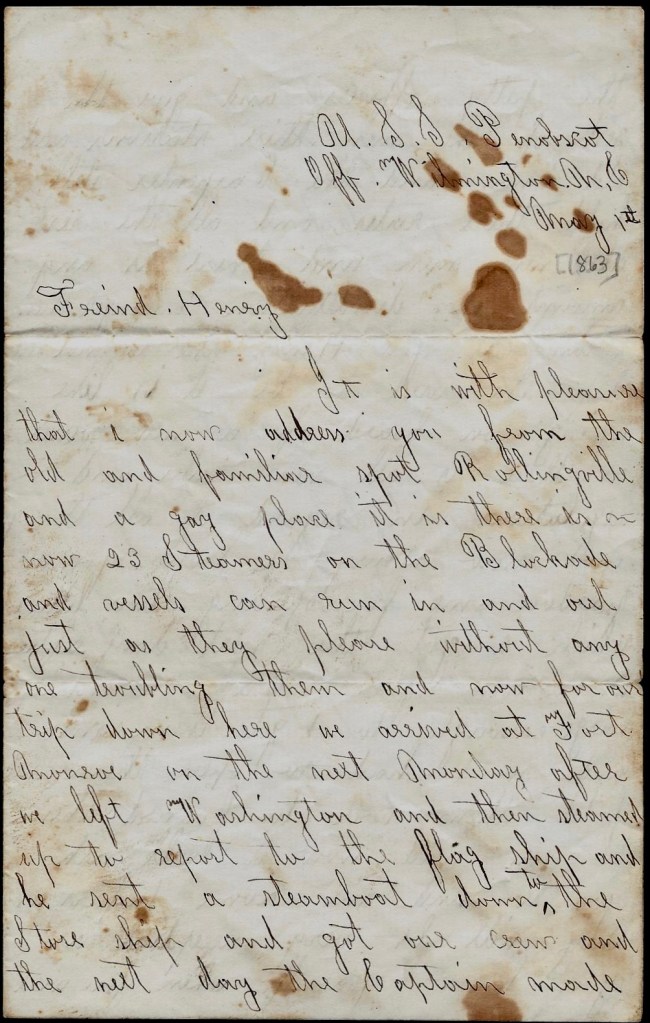 U. S. S. Penobscot
Off. Wilmington. N, C
May 1st
[1863]
Freind. Henry
It is with pleasure
that i now address you from the
old and familiar spot Rollingville
and a gay place it is there is
now 23 Steamers on the Blockade
and vessels can run in and out
just as they please without any
one troubling them and now for our
trip down here we arrived at Fort
Monroe on the next Monday after
we left Washington and then steamed
up to report to the flag ship and
he sent a steamboat down to the
Store ship and got our crew and
the next day the Captain made